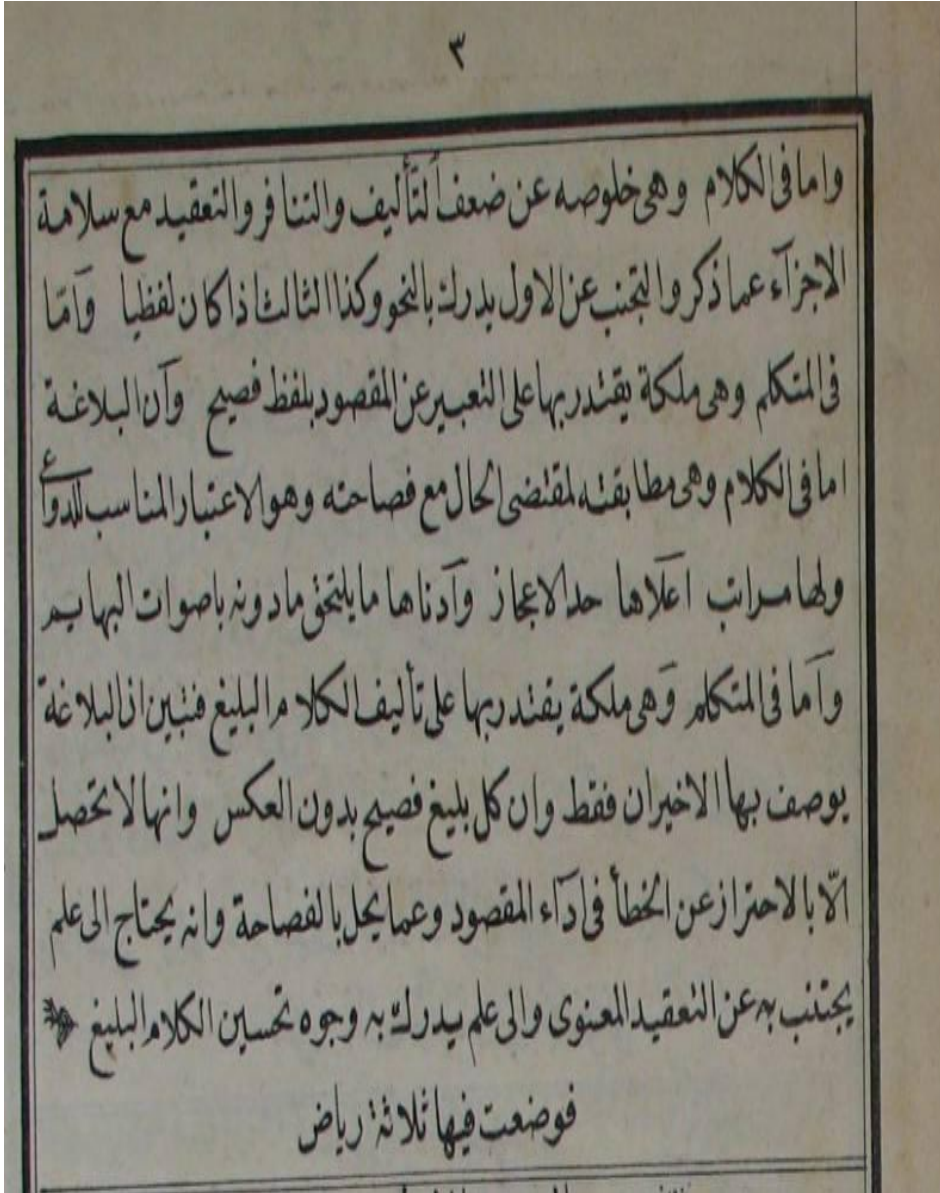 ٣
واما فى الكلام وهى خلوصه عن ضعف التأليف والتنافر والتعقيد مع سلامة
الاجزآء عما ذكر والتجنب عن الاول يدرك بالنحو وكذا الثالث اذا كان لفظيا وآمّا
فى المتكلم وهى ملكة يقتدر بها على التعبير عن المقصود بلفظ فصيح وآن البلاغة
اما فى الكلام وهى مطابقته لمقتضى الحال مع فصاحته وهو الاعتبار المناسب للدواعى
ولها مراتب آعلاها حد الاعجاز وآدناها ما يلتحق ما دونه باصوات البهايم
وآما فى المتكلم وَهى ملكة يقتدر بها على تأليف الكلام البليغ فتبين ان البلاغة
يوصف بها الاخيران فقط وان كل بليغ فصيح بدون العكس وانها لا تحصل
الّا بالاحتراز عن الخطأ فى ادآء المقصود وعما يخل بالفصاحة وانه يحتاج الى علم
يجتنب به عن التعقيد المعنوى والى علم يدرك به وجوه تحسين الكلام البليغ
فوضعت فيها ثلاثة رياض